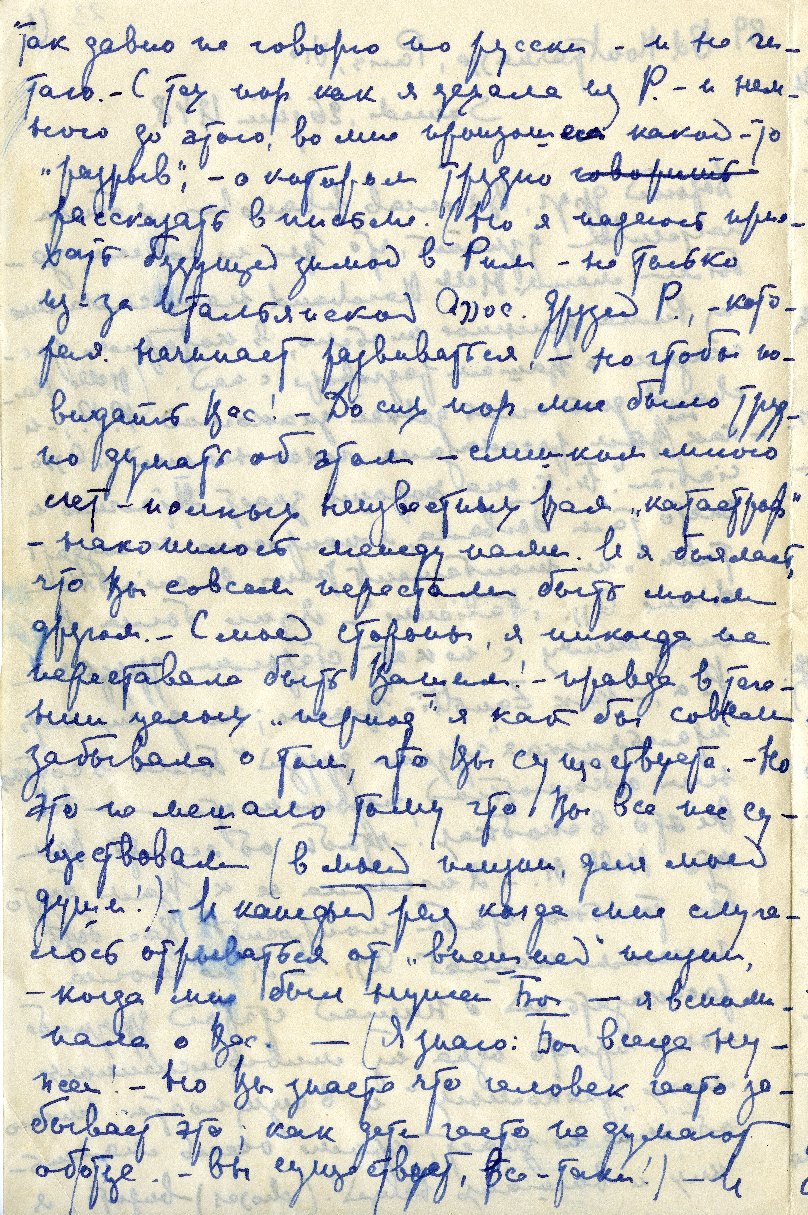 так давно не говорю по русски - и не чи-
таю. - С тех пор как я уехала из Р. - и нем-
ного до этого, во мне произошел какой-то
"разрыв", - о котором трудно говорить
рассказать в письме. (Но я надеюсь прие-
хать будущей зимой в Рим - не только
из-за Итальянской Ассос. Друзей Р., - кото-
рая начинает развиваться, - но чтобы по-
видать Вас! - До сих пор мне было труд-
но думать об этом - слишком много
лет - полных неизвестных Вам "катастроф"
- накопилось между нами. И я боялась,
что Вы совсем перестали быть моим
другом. - С моей стороны, я никогда не
переставала быть Вашим! - правда в тече-
нии целых "период" я как бы совсем
забывала о том, что Вы существуете. - Но
это не мешало тому что Вы все же су-
ществовали (в моей жизни, для моей
души!) - И каждый раз когда мне случа-
лось отрываться от "внешней" жизни,
- когда мне был нужен Бог - я вспоми-
нала о Вас. - (Я знаю: Бог всегда ну-
жен! - Но Вы знаете что человек часто за-
бывает это; как дети часто не думают
об отце. - Вы существует, все-таки!) - И